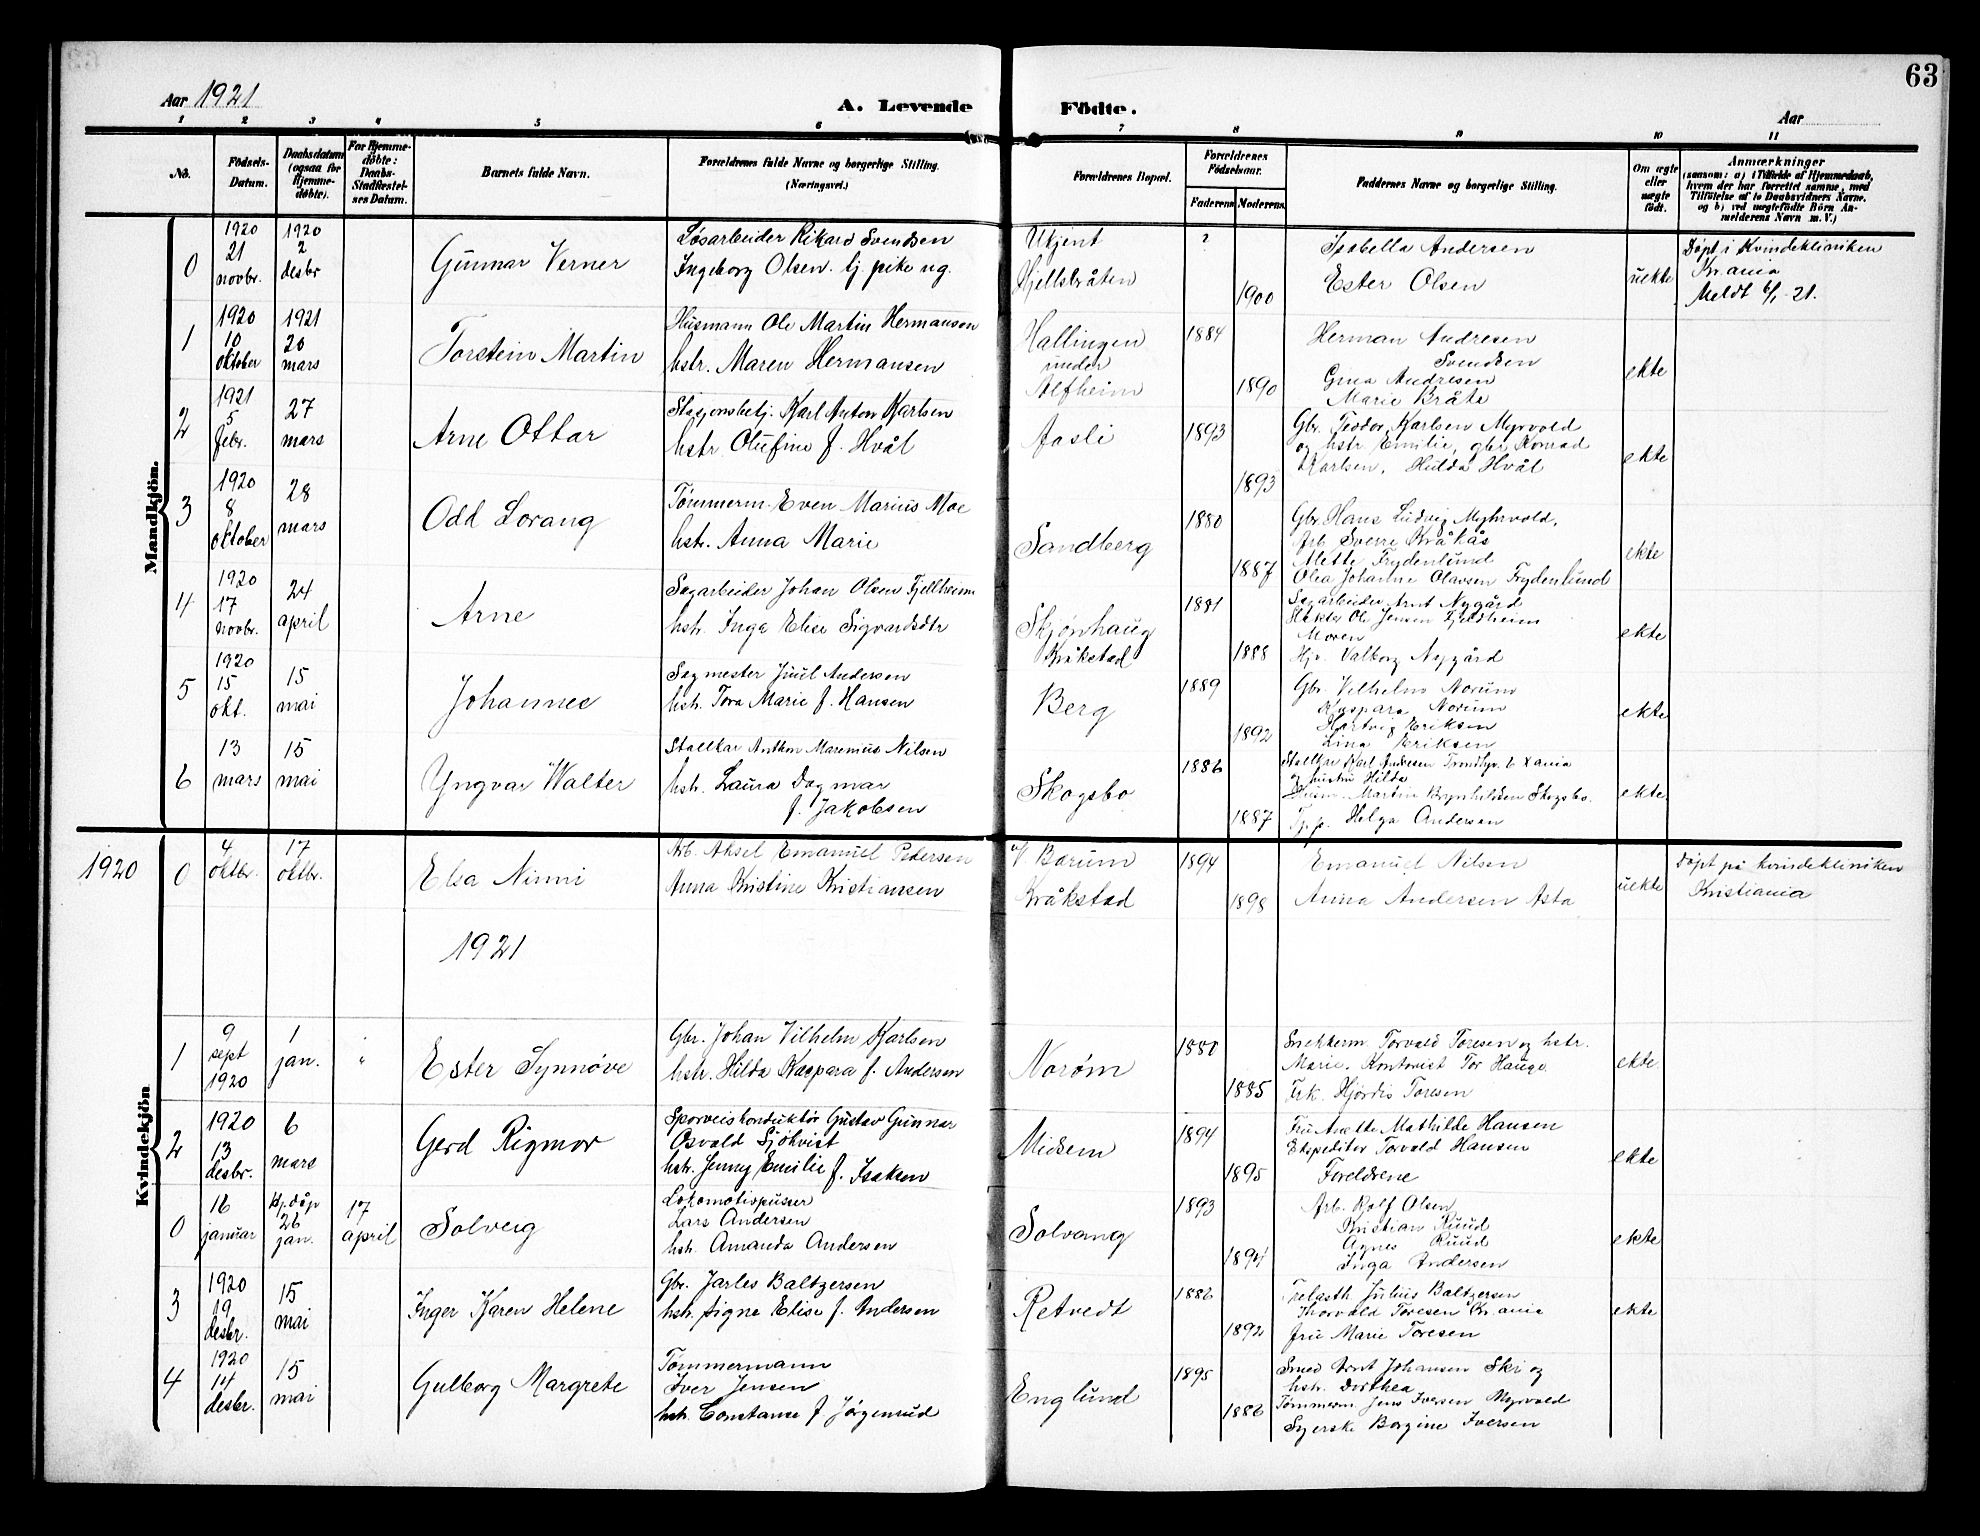 63
Aar 1921
A. Levende Födte.
Aar
1 2 3 4 5 6 7 8 9 10 11
No.
Födsels-Datum.
Daabsdatum (ogsaa for Hjemme-döbte).
For Hjemme-döbte: Daabs-Stadfæstel-ses Datum.
Barnets fulde Navn.
Forældrenes fulde Navne og borgerlige Stilling. (Næringsvei.)
Forældrenes Bopæl.
Forældrenes Födselsaar.
Faderens. Moderens.
Faddernes Navne og borgerlige Stilling.
Om ægte eller uægte födt.
Anmærkninger
(saasom: a) i Tilfælde af Hjemmedaab, hvem der har forrettet samme, med Tilföielse af to Daabsvidners Navne. og b) ved uægtefödte Börn An-melderens Navn m. V.)
Mandkjön.
0
1920 21 novbr.
1920 2 desbr
Gunnar Verner
Løsarbeider Rikard Svendsen
Ingeborg Olsen. tj. pike ug.
Ukjent
Hjellsbråten
?
1900
Isabella Andersen
Ester Olsen
uekte
Døpt i Kvindekliniken
Kr.ania
Meldt 6/1-21.
1
1920 10 oktober
1921 20 mars
Torstein Martin
Husmann Ole Martin Hermansen
hstr. Maren Hermansen
Hallingen
under
Alfheim
1884
1890
Herman Andresen
Svendsen
Gina Andresen
Marie Bråte
ekte
2
1921 5 febr.
27 mars
Arne Ottar
Stasjonsbetj. Karl Anton Karlsen
hstr Olufine f. Hvål
Aasli
1893
1893
Gbr. Teodor Karlsen Myrvold
og hstr Emilie, gbr Konrad
Karlsen, Hulda Hvål
ekte
3
1920 8 oktober
28 mars
Odd Lorang
Tømmerm. Even Marius Moe
hstr. Anna Marie
Sandberg
1880
1887
Gbr. Hans Ludvig Myhrvold,
Arb Sverre Kråkås
Mette Frydenlund
Olea Johanne Olavsen Frydenlund
ekte
4
1920 17 novbr.
24 april
Arne
Sagarbeider Johan Olsen Fjellheim
hstr. Inga Elise Sigvardsdtr
Skjønhaug
Kråkstad
1881
1888
Sagarbeider Arnt Nygård
Ole Jensen Fjeldheim
Moren
Hjv. Valborg Nygård
ekte
5
1920 15 okt.
15 mai
Johannes
Sagmester Juul Andersen
hstr. Tora Marie f. Hansen
Berg
1889
1892
Gbr. Vilhelm Norum
Kaspara Norum
Hartvig Eriksen
Lina Eriksen
ekte
6
13 mars
15 mai
Yngvar Walter
Stallkar Anthon Marenius Nilsen
hstr. Laura Dagmar
f. Jakobsen
Skogsbo
1886
1887
Stallkar Karl Andresen Trondhjv. 6 Xania
og hustru Hilda
Husm. Martin Brynhildsen Skogsbo.
Tj.p. Helga Andersen
ekte
Kvindekjön
1920
0
4 oktbr.
17 oktbr.
Elsa Ninni
Arb. Aksel Emanuel Pedersen
Anna Kristine Kristiansen
V Bærum
Kråkstad
1894
1898
Emanuel Nilsen
Anna Andersen Asta
uekte
Døpt på kvindekliniken
Kristiania
1921
1
9 sept 1920
1 jan.
"
Ester Synnøve
Gbr. Johan Vilhelm Karlsen
hstr. Hilda Kaspara f. Andersen
Norøm
1880
1885
Snekkerm. Torvald Toresen og hstr.
Marie. Kontorist Tor Hauge
Frk. Hjørdis Toresen
ekte
2
1920 13 desbr.
6 mars
Gerd Rigmor
Sporveiskonduktør Gustav Gunnar
Osvald Sjökvist
hstr. Jenny Emilie f. Isaksen
Midsem
1894
1895
Fru Anette Mathilde Hansen
Ekspeditør Torvald Hansen
Foreldrene
ekte
0
16 januar
Hj.døp 26 jan.
17 april
Solveig
Lokomotivpusser
Lars Andersen
hstr. Amanda Andersen
Solvang
1893
1894
Arb. Rolf Olsen
Kristian Ruud
Agnes Ruud
Inga Andersen
ekte
3
1920 19 desbr.
15 mai
Inger Karen Helene
Gbr. Jarles Baltzersen
hstr. Signe Elise f. Andersen
Retvedt
1886
1892
Trelasth Julius Baltzersen
Thorvald Toresen Kr.ania
fru Marie Toresen
ekte
4
1920 14 desbr.
15 mai
Gulborg Margrete
Tømmermann
Iver Jensen
hstr. Constanse f Jørgensrud
Englund
1895
1886
Smed Arnt Johansen Ski og
hstr. Dorthea
Tømmerm. Jens Iversen Myrvold
Syerske Borgine Iversen